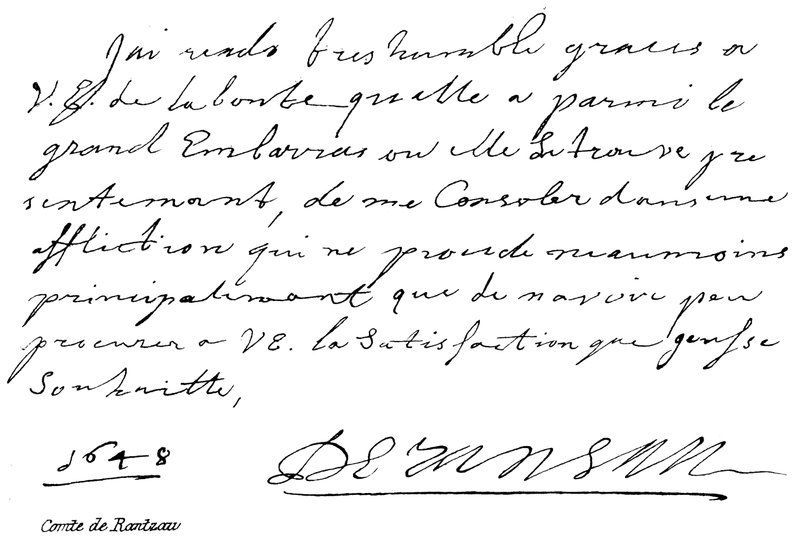 Jai rends treshumble graces a
V.E. de la bonte quelle a parmi le
grand Embarras ou elle Se trouve pre
sentemant, de me Consoler dans une
affliction qui ne procede neaumoins
principalemant que de navoir peu
procurer a VE. la Satisfaction que jeusse
Souhaitte,
1648
Comte de Rantzau